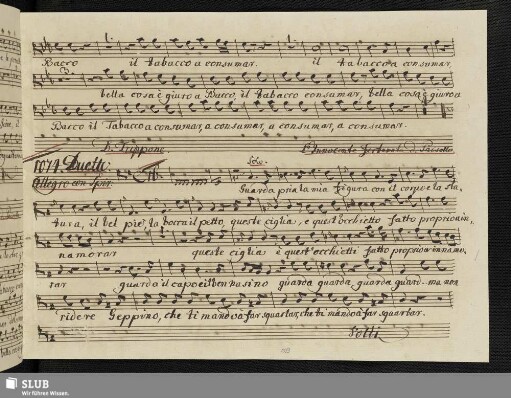 Bacco il tabacco a consumar. il tabacco a consumar,
bella cosa è giuro a Bacco, il tabacco consumar, bella cosa è giuro a
Bacco il Tabacco a consumar, a consumar, a consumar, a consumar.
L'Innocente
1074. Duetto.
Allegro con Spir:
Solo.
Guarda pria la mia figura con il corpo e la sta.
tura, il bel piè, la bocca il petto queste ciglia, e quest'occhietto fatto proprio in.
namorar queste ciglia e quest'occhietti fatto proprio innamo.
rar guarda il capo e il ben nasino guarda guarda, guarda guard. ma non
ridere Geppino, che ti mando a far squartar, che ti mando a far squartar.
Volti
SLUB
Wir führen Wissen.